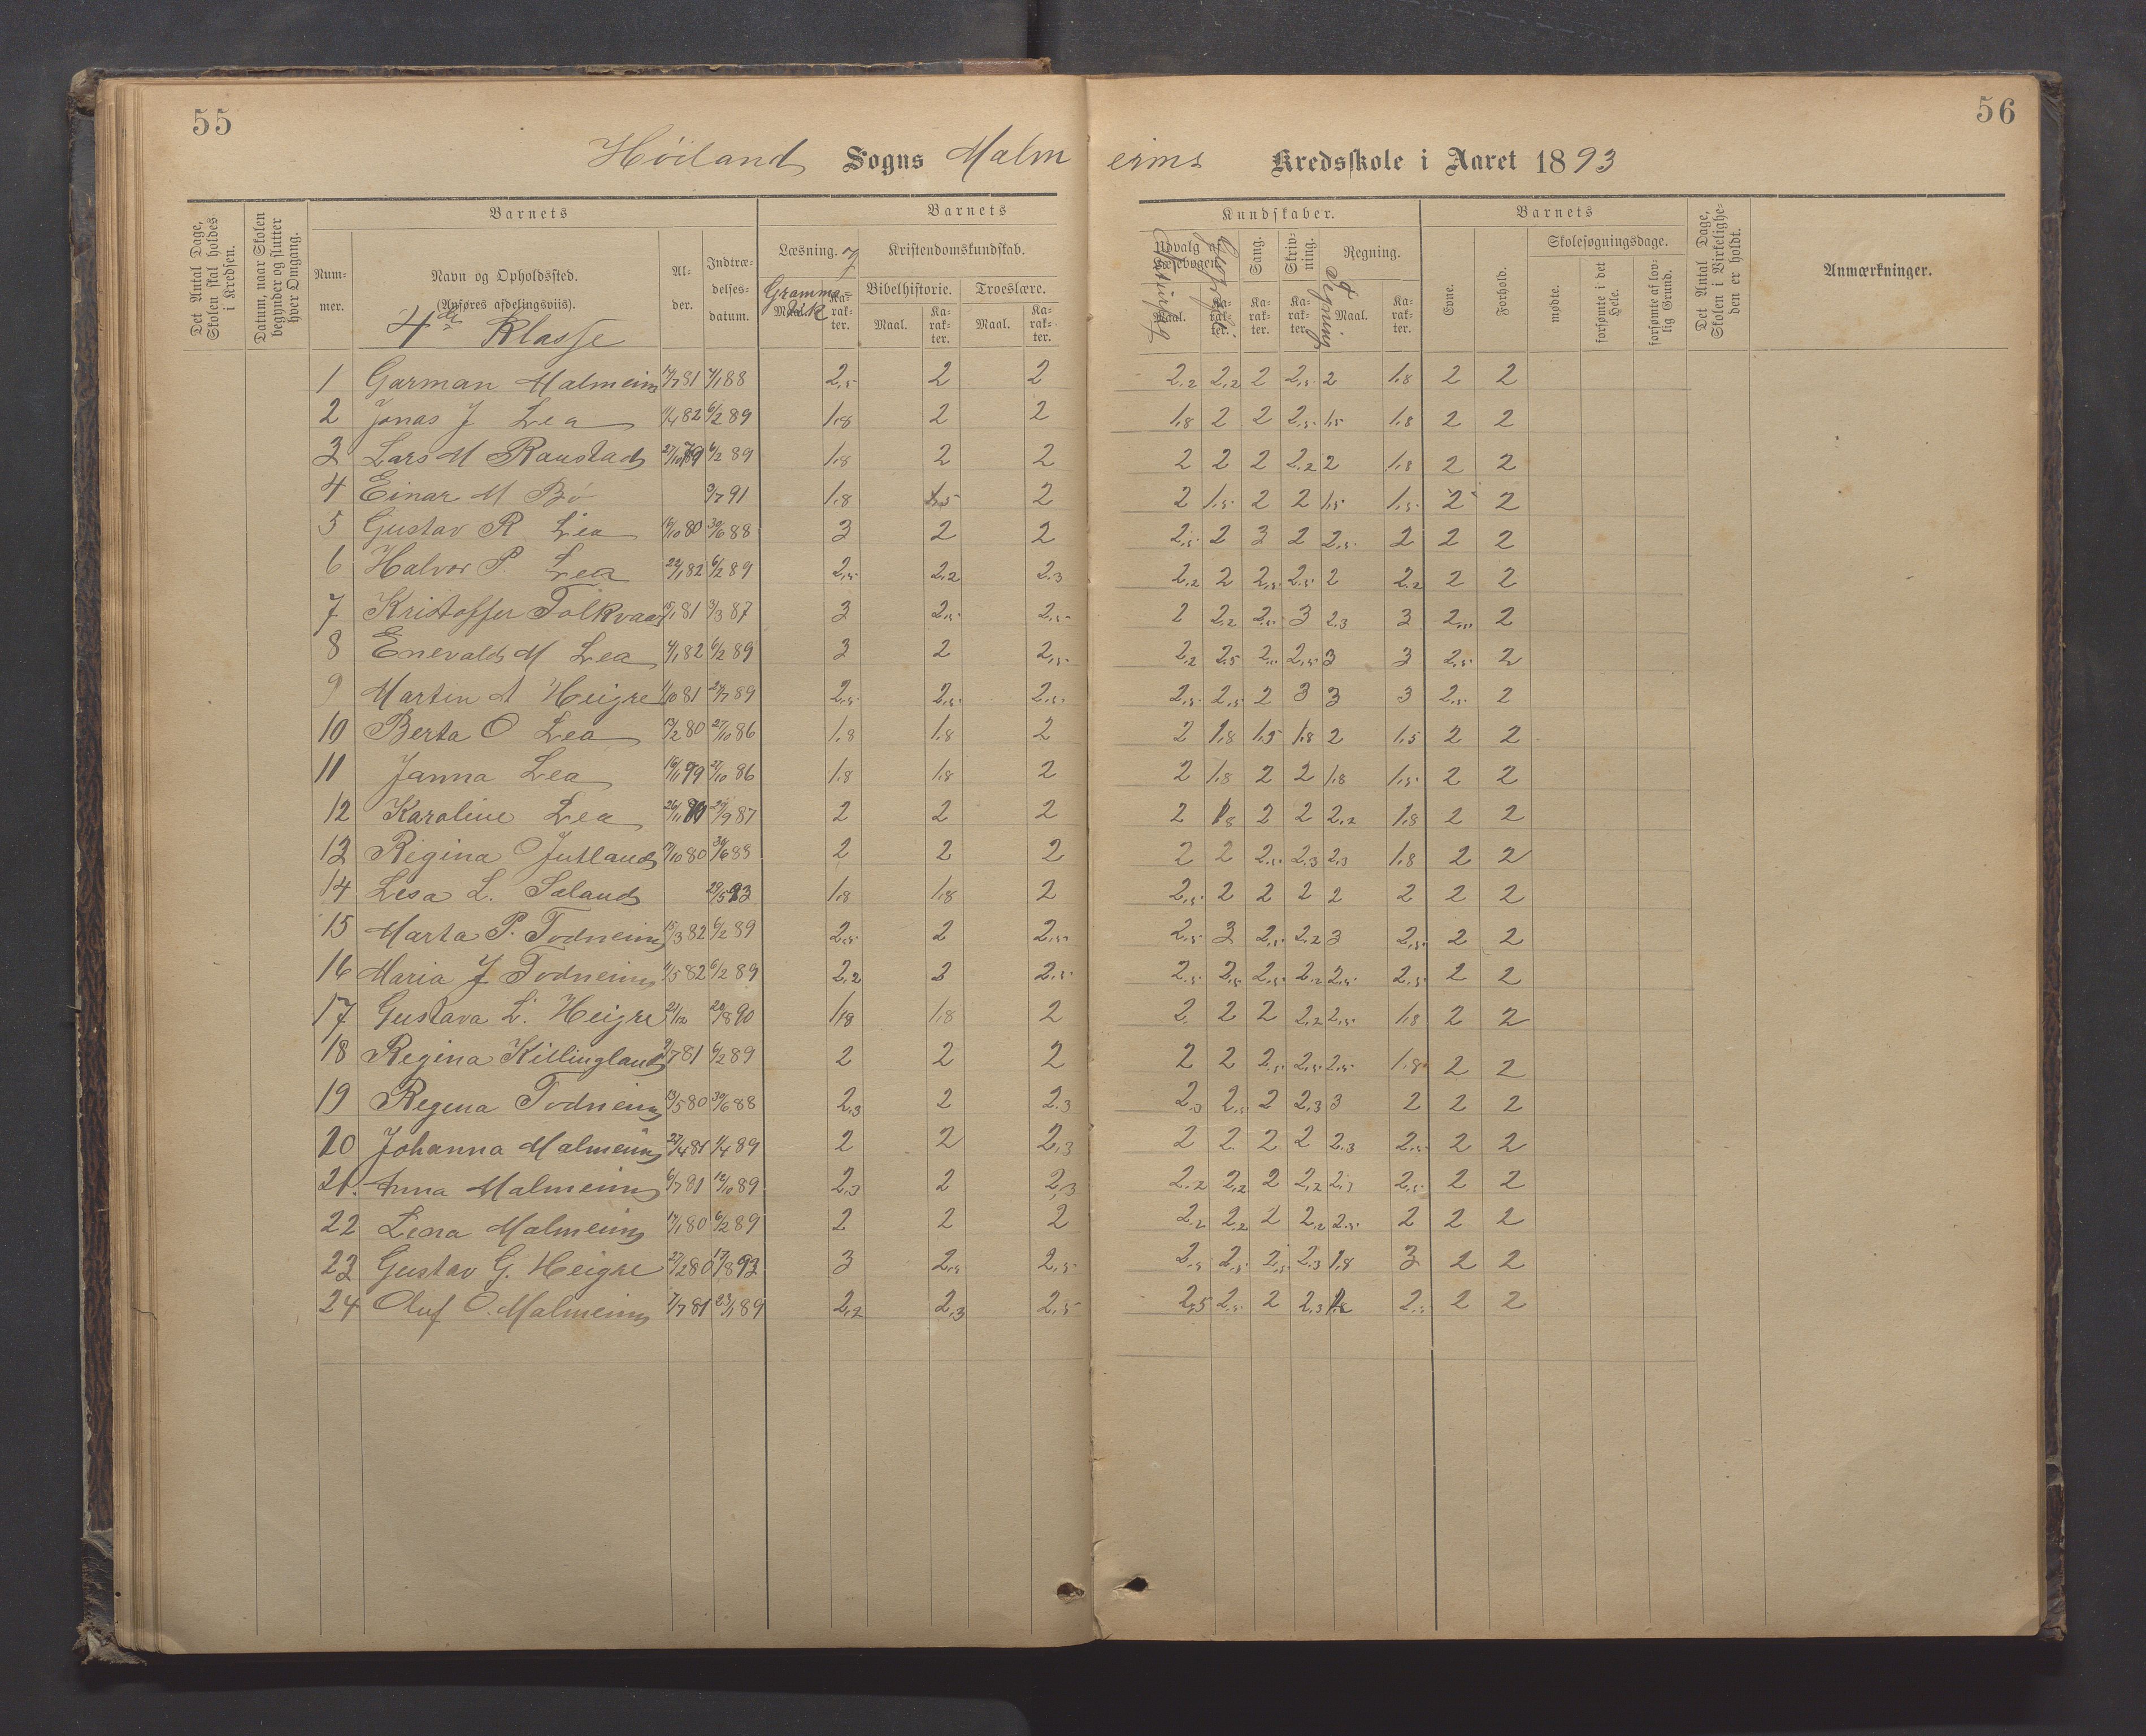 55
56
Höiland Sogns Malm eims Kredsskole i Aaret 1893
Det Antal Dage, Skolen skal holdes i Kredsen.
Datum, naar Skolen begynder og slutter hver Omgang.
Barnets
Nummer.
Navn og Opholdssted.
(Anføres afdelingsviis).
4de Klasse
Alder.
Indtrædelsesdatum.
Barnets Kundskaber.
Læsning. Grammatik
Maal. Karakter.
Kristendomskundskab.
Bibelhistorie. Troeslære.
Maal. Karakter. Maal. Karakter.
Udvalg af Læsebogen. Geografi
Maal. Karakter.
Sang. Karakter.
Skrivning. Karakter.
Regning. Tegning
Maal. Karakter.
Barnets
Evne.
Forhold.
Skolesøgningsdage.
mødte.
forsømte i det Hele.
forsømte af lovlig Grund.
Det Antal Dage, Skolen i Virkeligheden er holdt.
Anmærkninger.
1 Garman Malmeim 88 2,5 2 2 2,2 2,2 2 2,5 2 1,8 2 2
2 Jonas J Lea 82 6/2 89 1,8 2 2 1,8 2 2 2,5 1,5 1,8 2 2
3 Lars M Raustad 6/2 89 1,8 2 2 2 2 2 2,2 2 1,8 2 2
4 Einar M Bø 3/7 91 1,8 1,5 2 2 1,5 2 2 1,5 1,5 2 2
5 Gustav R Lea 16/10 80 30/6 88 3 2 2 2,5 2 3 2 2,5 2 2 2
6 Halvor P. Lea 22/1 82 6/2 89 2,5 2,2 2,3 2,2 2 2,5 2,5 2 2,2 2 2
7 Kristoffer Tolkvaas 15/1 81 3/3 87 3 2,5 2,5 2 2,2 2,5 3 2,3 3 2,5 2
8 Enevald M Lea 82 6/2 89 3 2 2,5 2,2 2,5 2,5 2,5 3 3 2,5 2
9 Martin A Heigre 81 89 2,5 2,5 2,5 2,5 2,5 2 3 3 3 2,5 2
10 Berta O Lea 80 27/10 86 1,8 1,8 2 2 1,8 1,5 1,8 2 1,5 2 2
11 Janna Lea 27/10 86 1,8 1,8 2 2 1,8 2 2 1,8 1,5 2 2
12 Karoline Lea 87 2 2 2 2 1,8 2 2 2,2 1,8 2 2
13 Regina O Jutland 80 30/6 88 2 2 2 2 2 2,5 2,3 2,3 1,8 2 2
14 Lisa L. Søland 29/5 93 1,8 1,8 2 2,5 2 2 2 2 2 2 2
15 Marta P. Todneim 15/3 82 6/2 89 2,5 2 2,5 2,5 3 2,5 2,2 3 2,5 2 2
16 Maria J Todneim 82 6/2 89 2,2 2 2,5 2,5 2,5 2,5 2,2 2,5 2,5 2 2
17 Gustava L. Heigre 21/12 90 1,8 1,8 2 2 2 2 2,2 2,5 1,8 2 2
18 Regina Killingland 81 6/2 89 2 2 2 2 2 2,5 2,5 2,5 1,8 2 2
19 Regina Todneim 13/5 80 30/6 88 2,3 2 2,3 2,3 2,5 2 2,3 3 2 2 2
20 Johanna Malmeim 89 2 2 2,3 2 2 2 2 2,3 2,5 2 2
21. Anna Malmeim 6/7 81 89 2,3 2 2,3 2,2 2,2 2 2,2 2,5 2 2
22 Lena Malmeim 80 6/2 89 2 2 2 2,2 2,2 2 2,2 2,5 2 2 2
23 Gustav G. Heigre 27/2 80 93 3 2,5 2,5 2,5 2,5 2,5 2,3 1,8 3 2 2
24 Oluf O. Malmeim 7/7 81 23/1 89 2,2 2,3 2,5 2,5 2,5 2 2,3 2 2